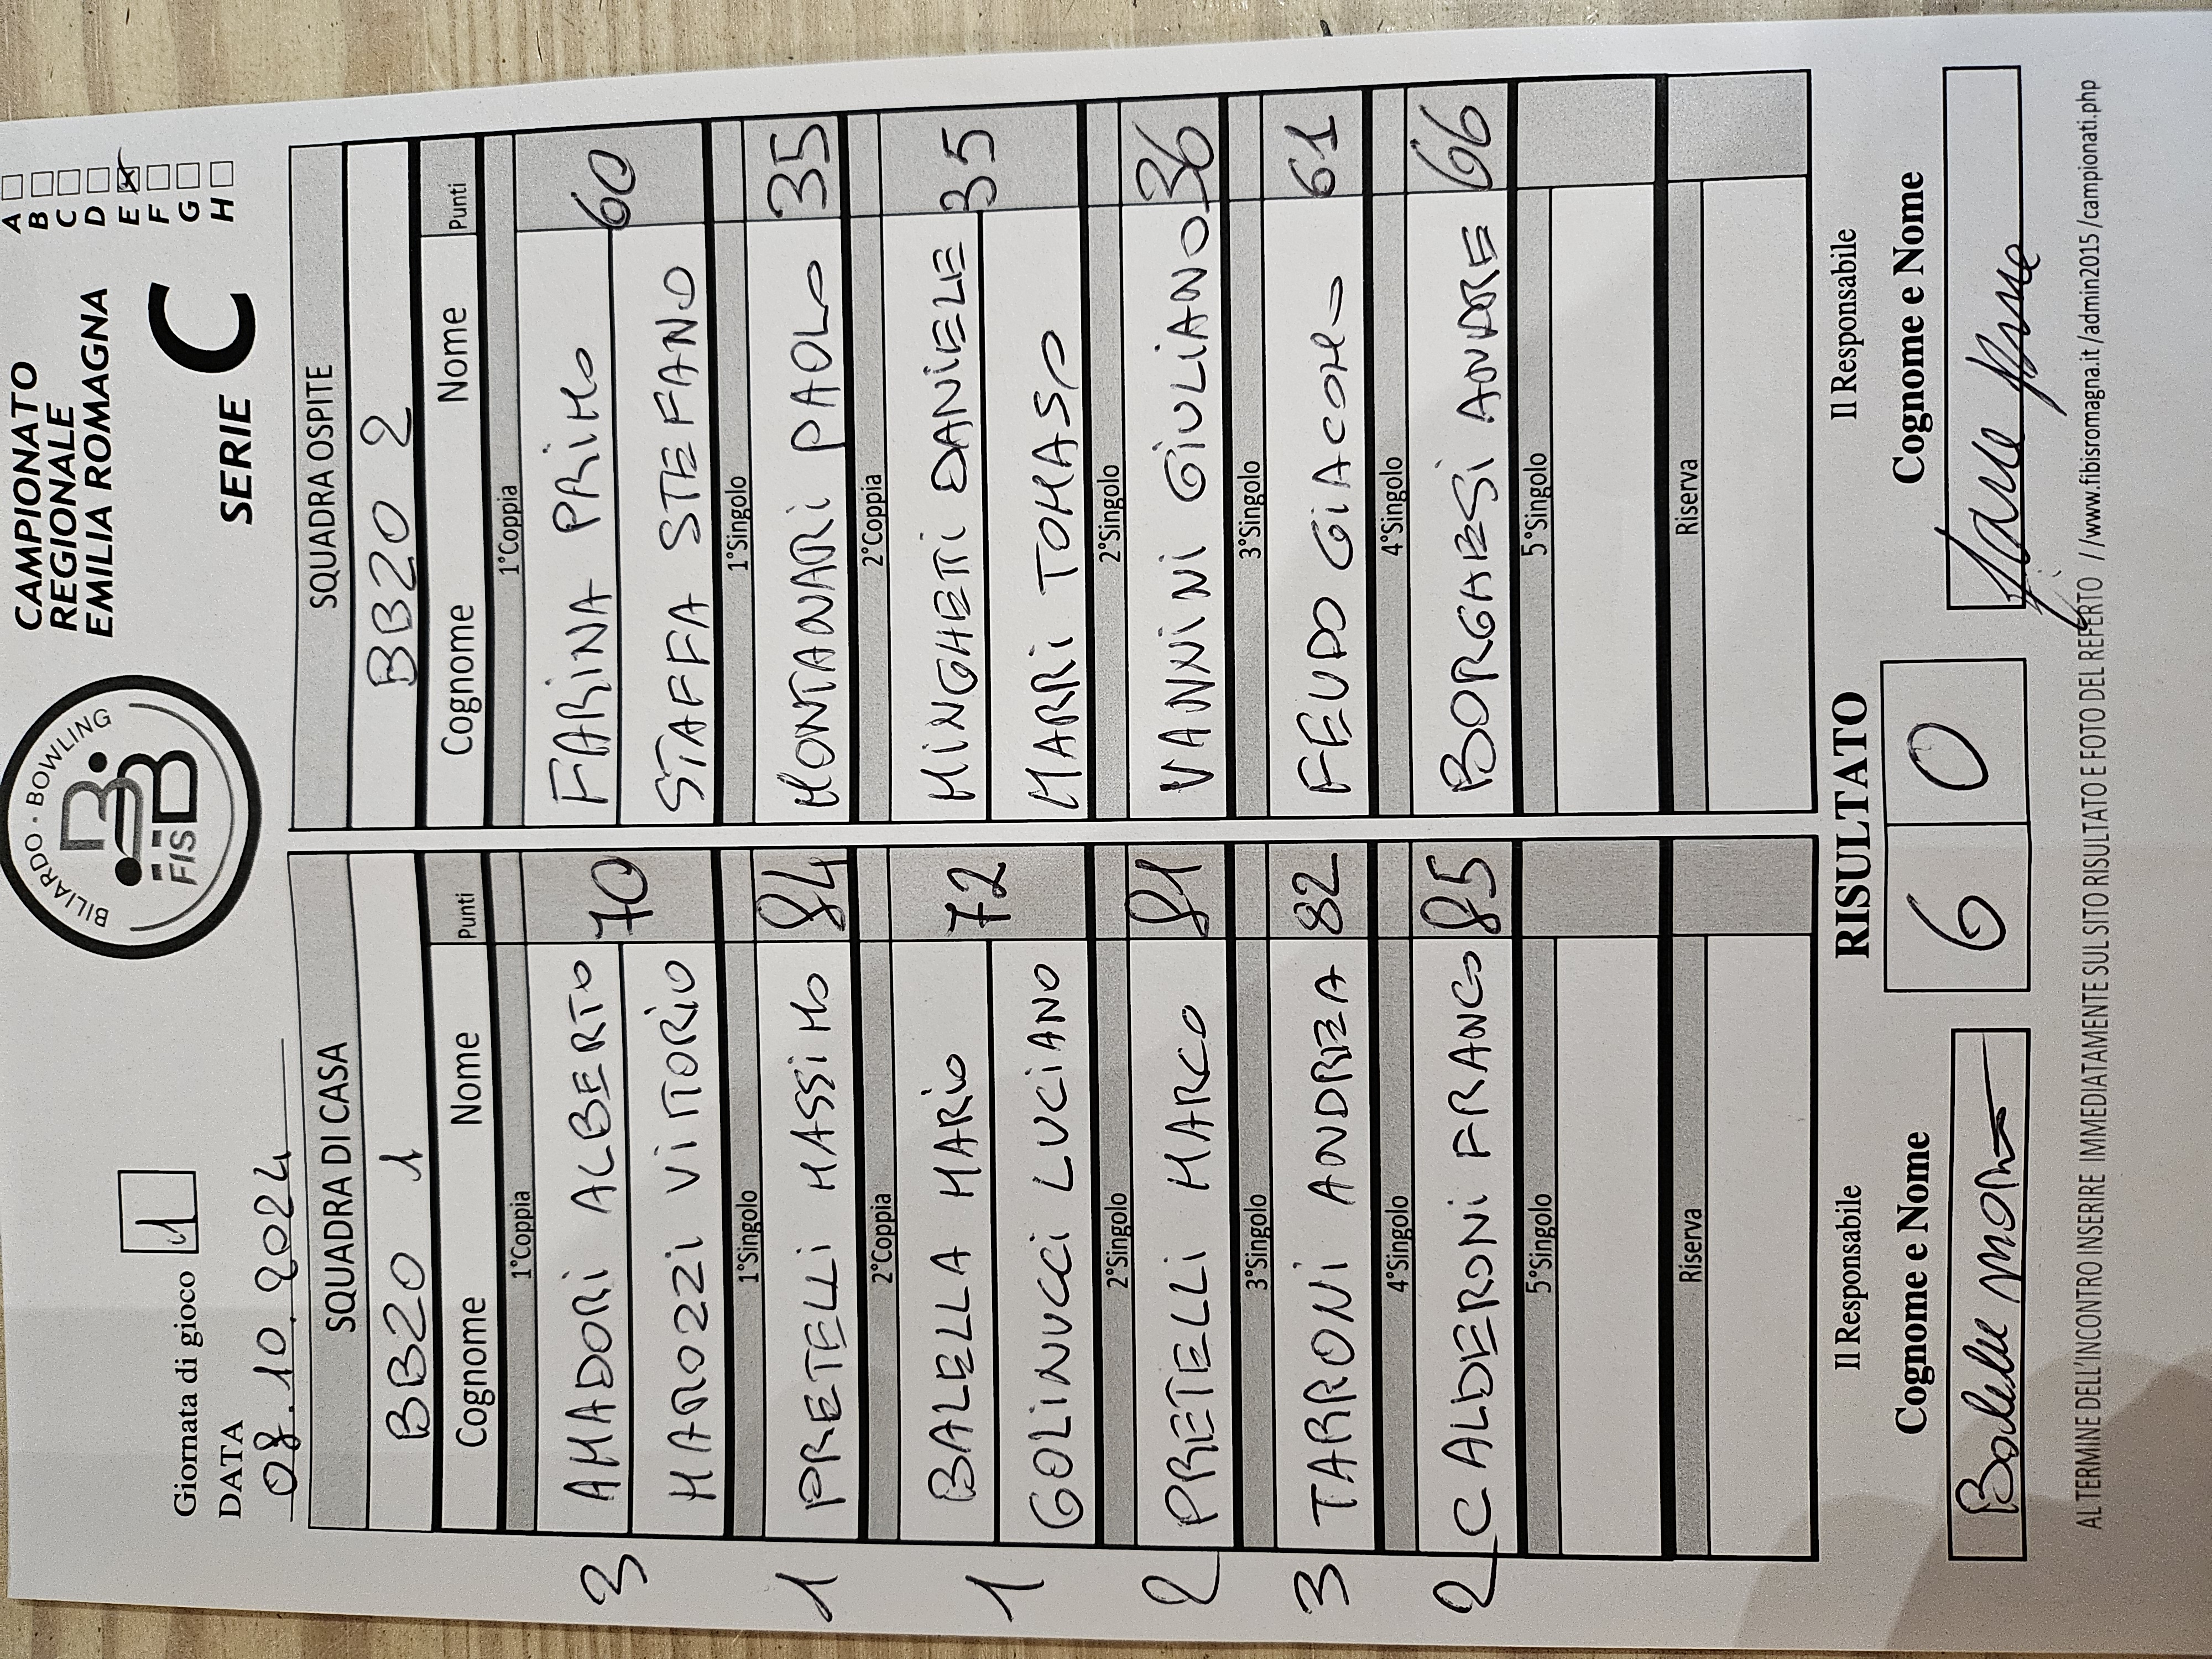 Giornata di gioco 1
DATA
08.10.2024
BILIARDO · BOWLING
FISBB
CAMPIONATO
REGIONALE
EMILIA ROMAGNA
SERIE C
A
B
C
D
E x
F
G
H
SQUADRA DI CASA SQUADRA OSPITE
BB20 1 BB20 2
Cognome Nome Punti Cognome Nome Punti
1°Coppia 1°Coppia
3 AMADORI ALBERTO 70 FARINA PRIMO 60
MAROZZI VITTORIO STAFFA STEFANO
1°Singolo 1°Singolo
1 PRETELLI MASSIMO 84 MONTANARI PAOLO 35
2°Coppia 2°Coppia
1 BALELLA MARIO 72 MINGHETTI DANIELE 35
GOLINUCCI LUCIANO MARRI TOMASO
2°Singolo 2°Singolo
2 PRETELLI MARCO 81 VANNINI GIULIANO 36
3°Singolo 3°Singolo
3 TARRONI ANDREA 82 FEUDO GIACOMO 61
4°Singolo 4°Singolo
2 CALDERONI FRANCO 85 BORGHESI ANDRE 66
5°Singolo 5°Singolo
Riserva Riserva
Il Responsabile RISULTATO Il Responsabile
Cognome e Nome 6 0 Cognome e Nome
AL TERMINE DELL'INCONTRO INSERIRE IMMEDIATAMENTE SUL SITO RISULTATO E FOTO DEL REFERTO //www.fibisromagna.it/admin2015/campionati.php